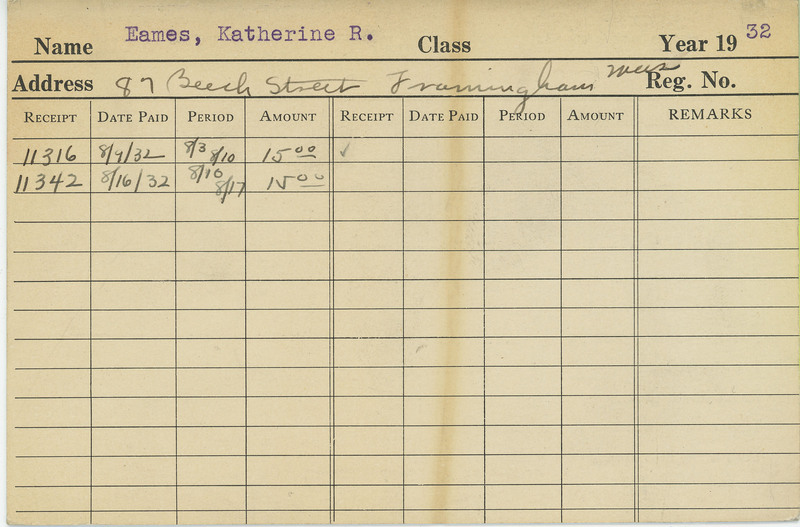 Name Eames, Katherine R. Class Year 19 32
Address 87 Beech Street Framingham Mass Reg. No.
RECEIPT DATE PAID PERIOD AMOUNT RECEIPT DATE PAID PERIOD AMOUNT REMARKS
11316 8/9/32 8/3 8/10 15 00 ✓
11342 8/16/32 8/10 8/17 15 00